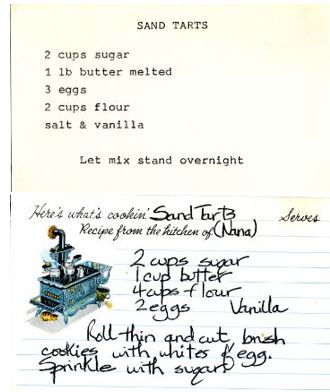 SAND TARTS
2 cups sugar
1 lb butter melted
3 eggs
2 cups flour
salt & vanilla
Let mix stand overnight
Here's what's cookin' Sand Tarts Serves
Recipe from the kitchen of (Nana)
2 cups sugar
1 cup butter
4 cups flour
2 eggs Vanilla
Roll thin and cut, brush
cookies with whites of egg.
Sprinkle with sugar